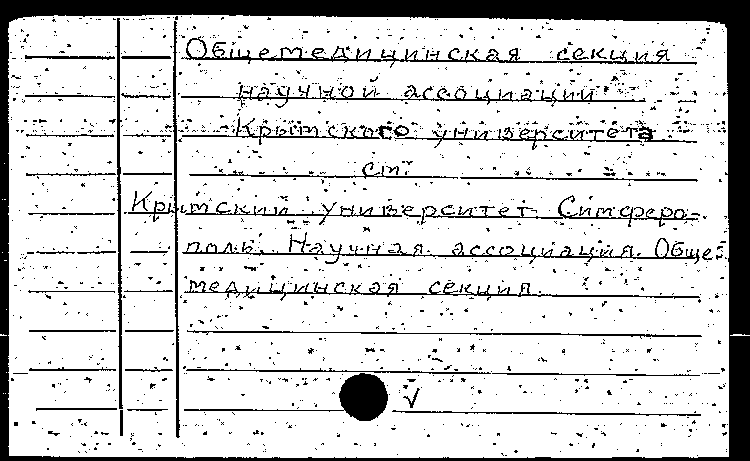 Общемедицинская секция
научной ассоциации
Крымского университета
см:
Крымский университет. Симферо-
поль. Научная ассоциация. Обще-
медицинская секция.
√